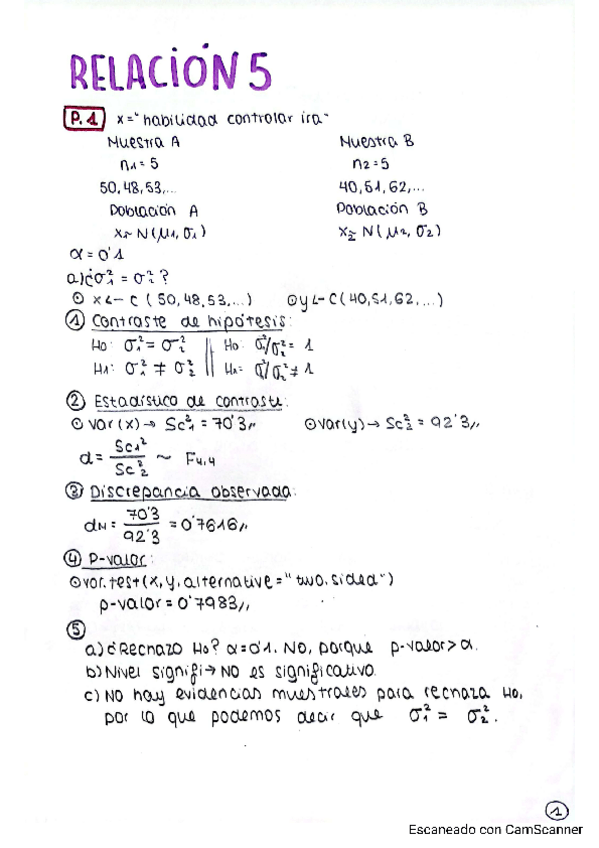 RELACIÓN 5
P.1 x="habilidad controlar ira"
Muestra A Muestra B
n1=5 n2=5
50,48,53,... 40,51,62,...
Población A Población B
x~N(μ1,σ1) x2~N(μ2,σ2)
α=0'1
a)¿σ1²=σ2²?
⊙ x<-c(50,48,53,...) ⊙y<-c(40,51,62,...)
① Contraste de hipótesis:
H0: σ1²=σ2² || H0: σ1²/σ2²=1
H1: σ1²≠σ2² || H1: σ1²/σ2²≠1
② Estadístico de contraste:
⊙ var(x)→Sc1²=70'3,, ⊙var(y)→Sc2²=92'3,,
d=Sc1²/Sc2² ~ F4,4
③ Discrepancia observada:
dN=70'3/92'3=0'7616,,
④ P-valor:
⊙var.test(x,y,alternative="two.sided")
p-valor=0'7983,,
⑤
a)¿Rechazo H0? α=0'1. NO, porque p-valor>α.
b)Nivel signifi→NO es significativo.
c)NO hay evidencias muestrales para rechaza H0,
por lo que podemos decir que σ1²=σ2².
1
Escaneado con CamScanner